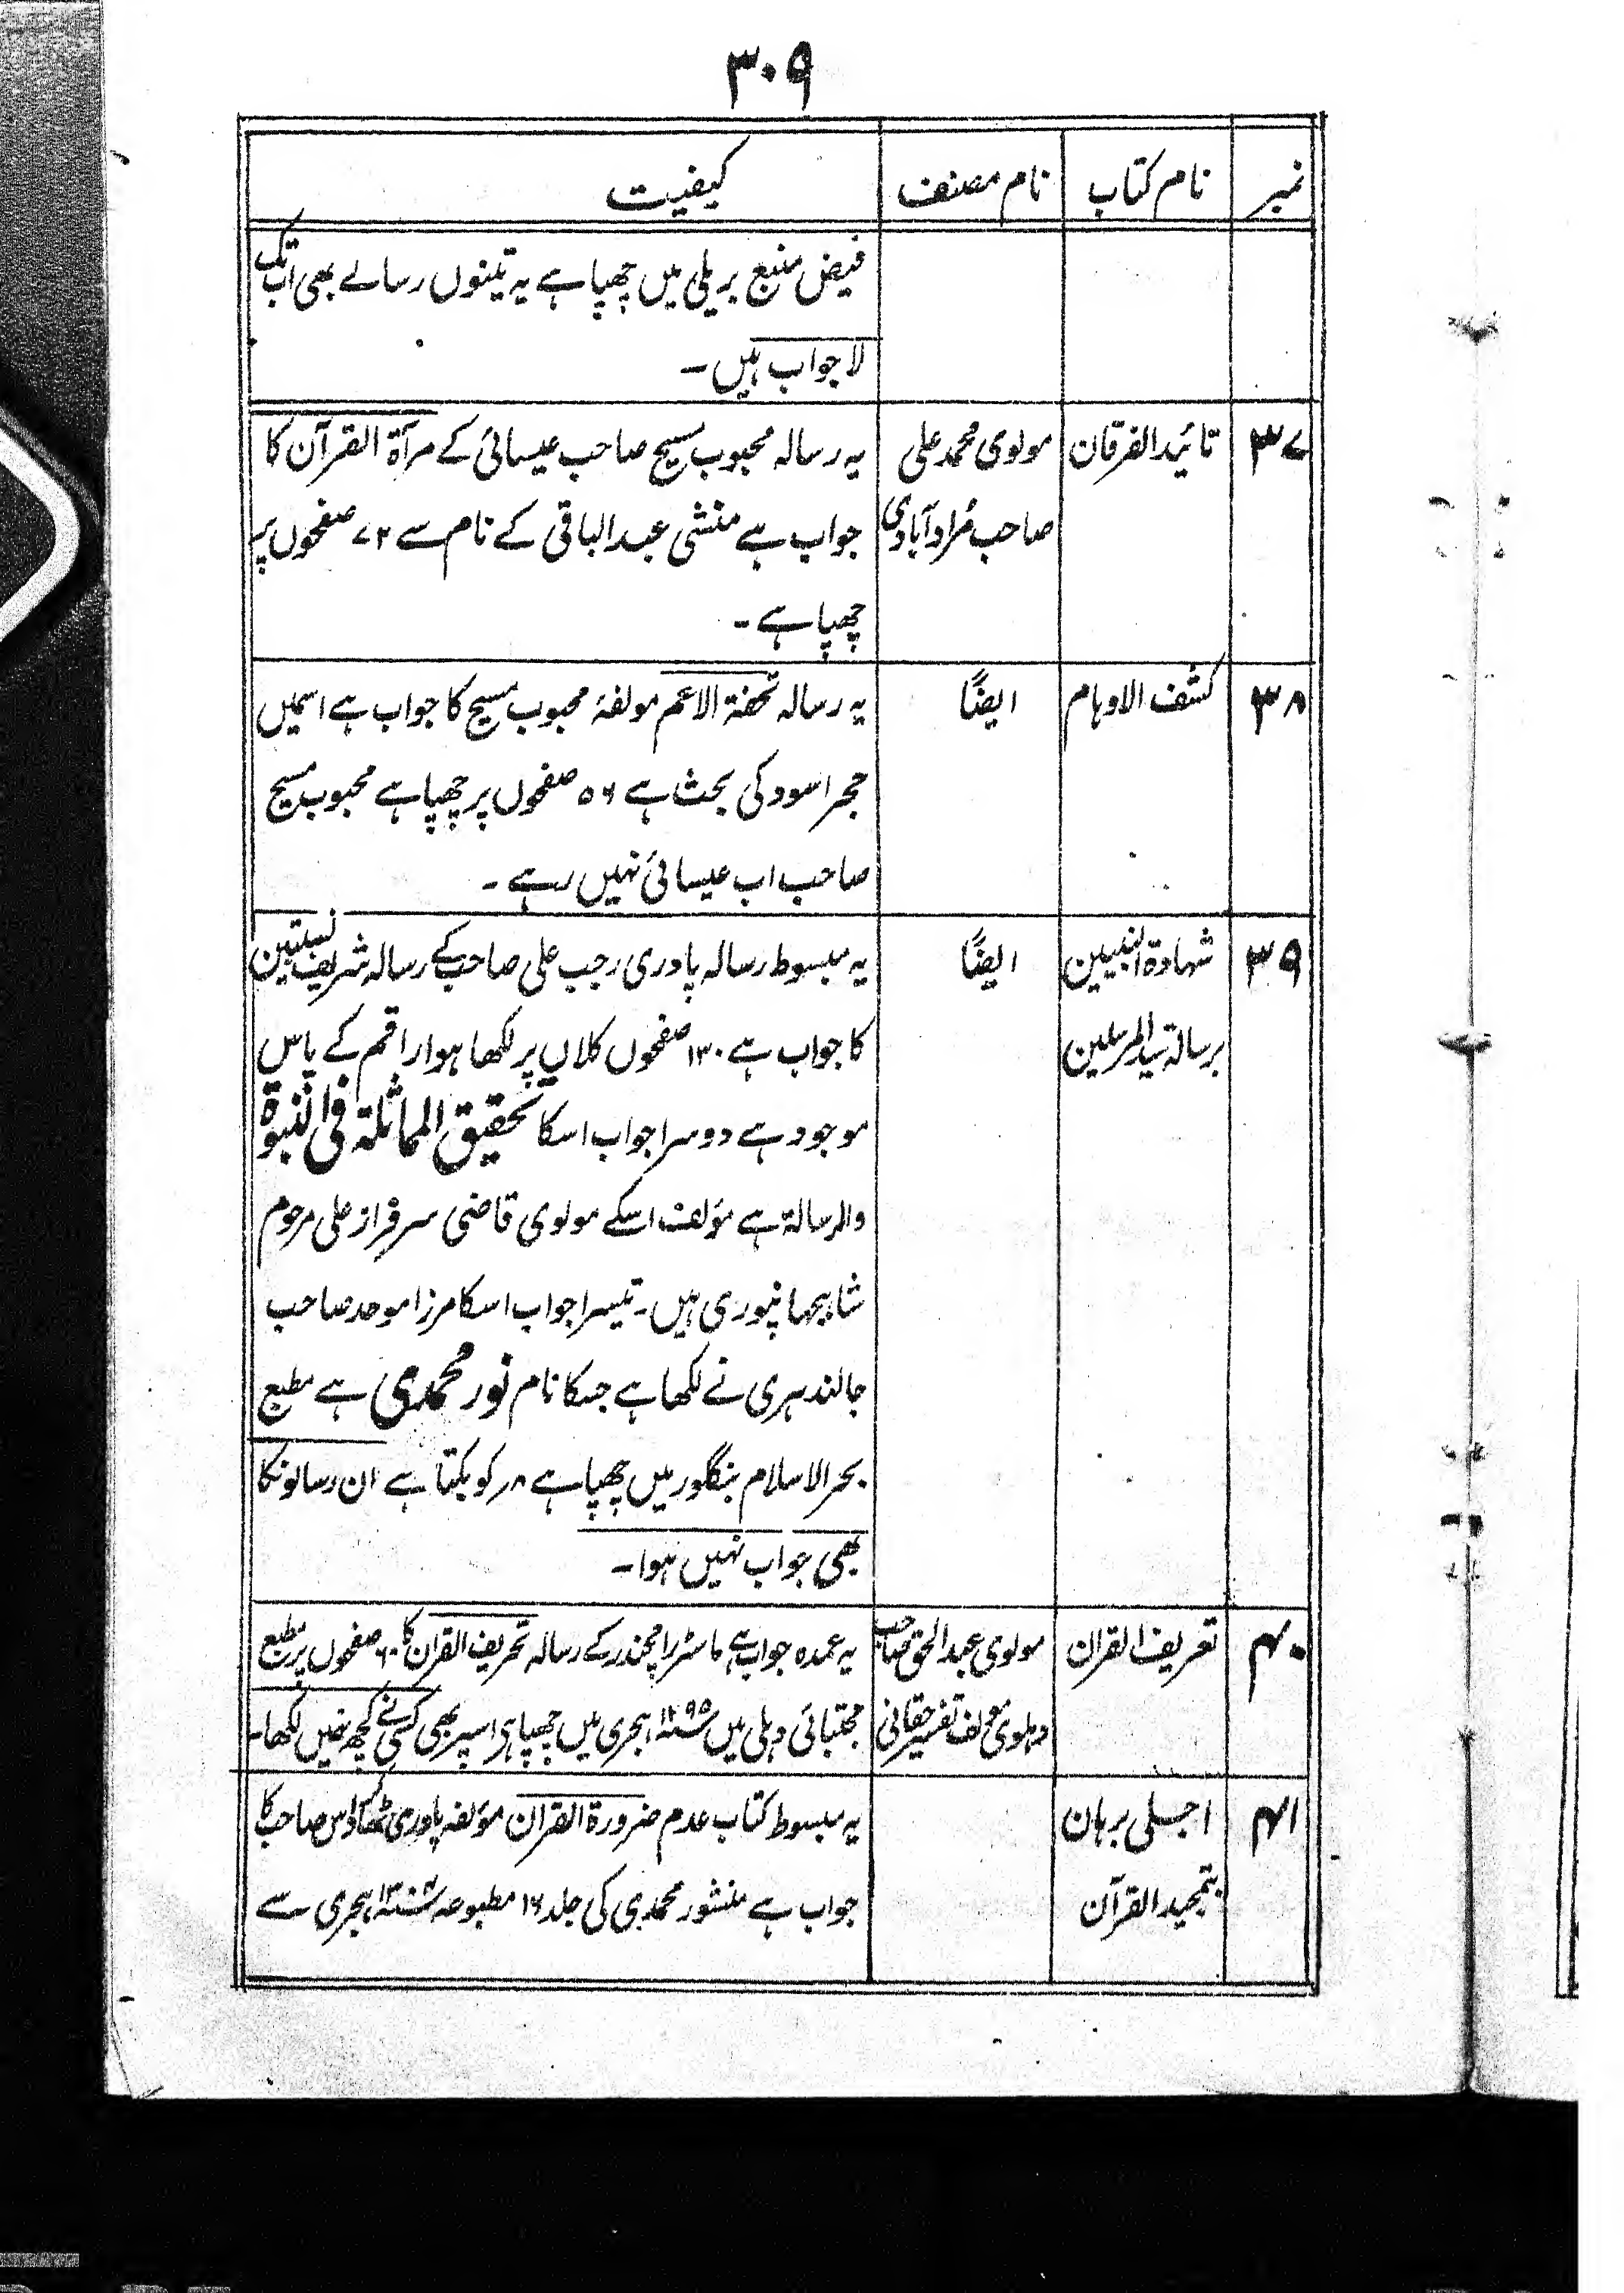 ۳۰۹
نمبر | نام کتاب | نام مصنف | کیفیت
فیض منبع بریلی میں چھپا ہے یہ تینوں رسالے بھی اب تک
لاجواب ہیں۔
۳۷ | تائید الفرقان | مولوی محمد علی | یہ رسالہ محبوب مسیح صاحب عیسائی کے مرآۃ القرآن کا
صاحب مُراد آبادی | جواب ہے منشی عبدالباقی کے نام سے ۷۲ صفحوں پر
چھپا ہے۔
۳۸ | کشف الاوہام | ایضًا | یہ رسالہ تحفۃ الاعم مولفۂ محبوب مسیح کا جواب ہے اسمیں
حجر اسود کی بحث ہے ۵۶ صفحوں پر چھپا ہے محبوب مسیح
صاحب اب عیسائی نہیں رہے۔
۳۹ | شہادۃ النبیین | ایضًا | یہ مبسوط رسالہ پادری رجب علی صاحب کے رسالہ شریف
برسالۃ سید المرسلین | کا جواب ہے ۱۳۰ صفحوں کلاں پر لکھا ہوا راقم کے پاس
موجود ہے دوسرا جواب اسکا تحقیق المماثلۃ فی النبوۃ
والرسالۃ ہے مؤلف اسکے مولوی قاضی سرفراز علی مرحوم
شاہجہانپوری ہیں۔ تیسرا جواب اسکا مرزا موحد صاحب
جالندہری نے لکھا ہے جسکا نام نور محمدی ہے مطبع
بحر الاسلام بنگلور میں چھپا ہے ۸ر کو بکتا ہے ان رسالونکا
بھی جواب نہیں ہوا۔
۴۰ | تعریف القران | مولوی عبد الحق صاحب | یہ عمدہ جواب ہے ماسٹر رامچندر کے رسالہ تحریف القرن کا ۶۰ صفحوں پر مطبع
دہلوی مؤلف تفسیر حقانی | مجتبائی دہلی میں ۱۲۹۵ ہجری میں چھپا ہے اسپر بھی کسی نے کچھ نہیں لکھا۔
۴۱ | اجلی برہان | یہ مبسوط کتاب عدم ضرورۃ القران مؤلفہ پادری ٹھاکر داس صاحب کا
بتمجید القرآن | جواب ہے منشور محمدی کی جلد ۱۶ مطبوعہ ہجری سے